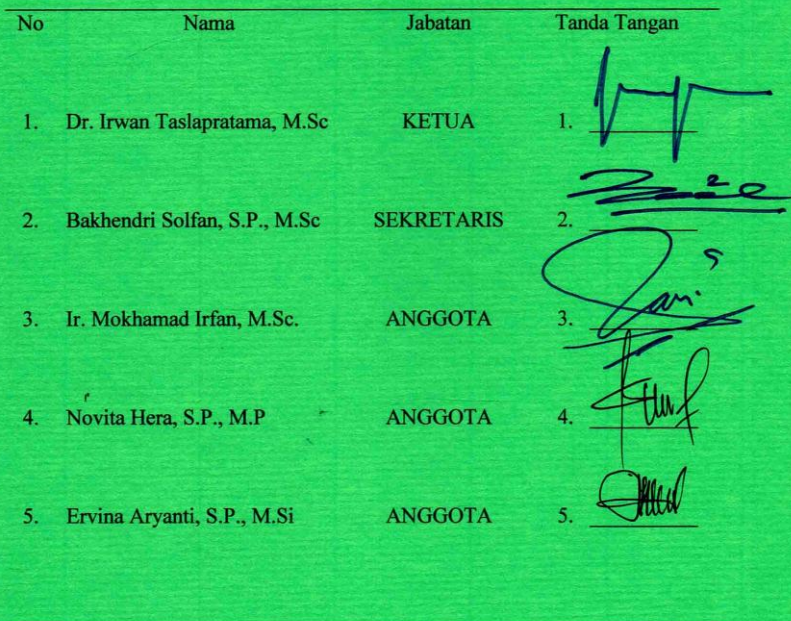 No Nama Jabatan Tanda Tangan
1. Dr. Irwan Taslapratama, M.Sc KETUA 1.
2. Bakhendri Solfan, S.P., M.Sc SEKRETARIS 2.
3. Ir. Mokhamad Irfan, M.Sc. ANGGOTA 3.
4. Novita Hera, S.P., M.P ANGGOTA 4.
5. Ervina Aryanti, S.P., M.Si ANGGOTA 5.